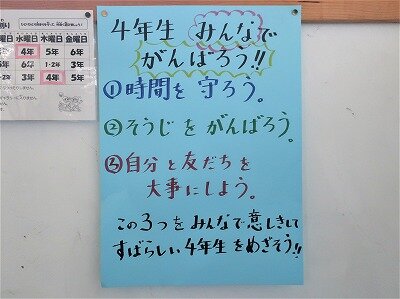 4年生 みんなで
がんばろう!!
①時間を 守ろう。
②そうじ を がんばろう。
③自分 と 友だちを
大事にしよう。
この3つを みんなで意しきして
すばらしい 4年生 をめざそう!!
水曜日 木曜日 金曜日
4年 5年 6年
6年 1・2年 3年
3年 4年 5年